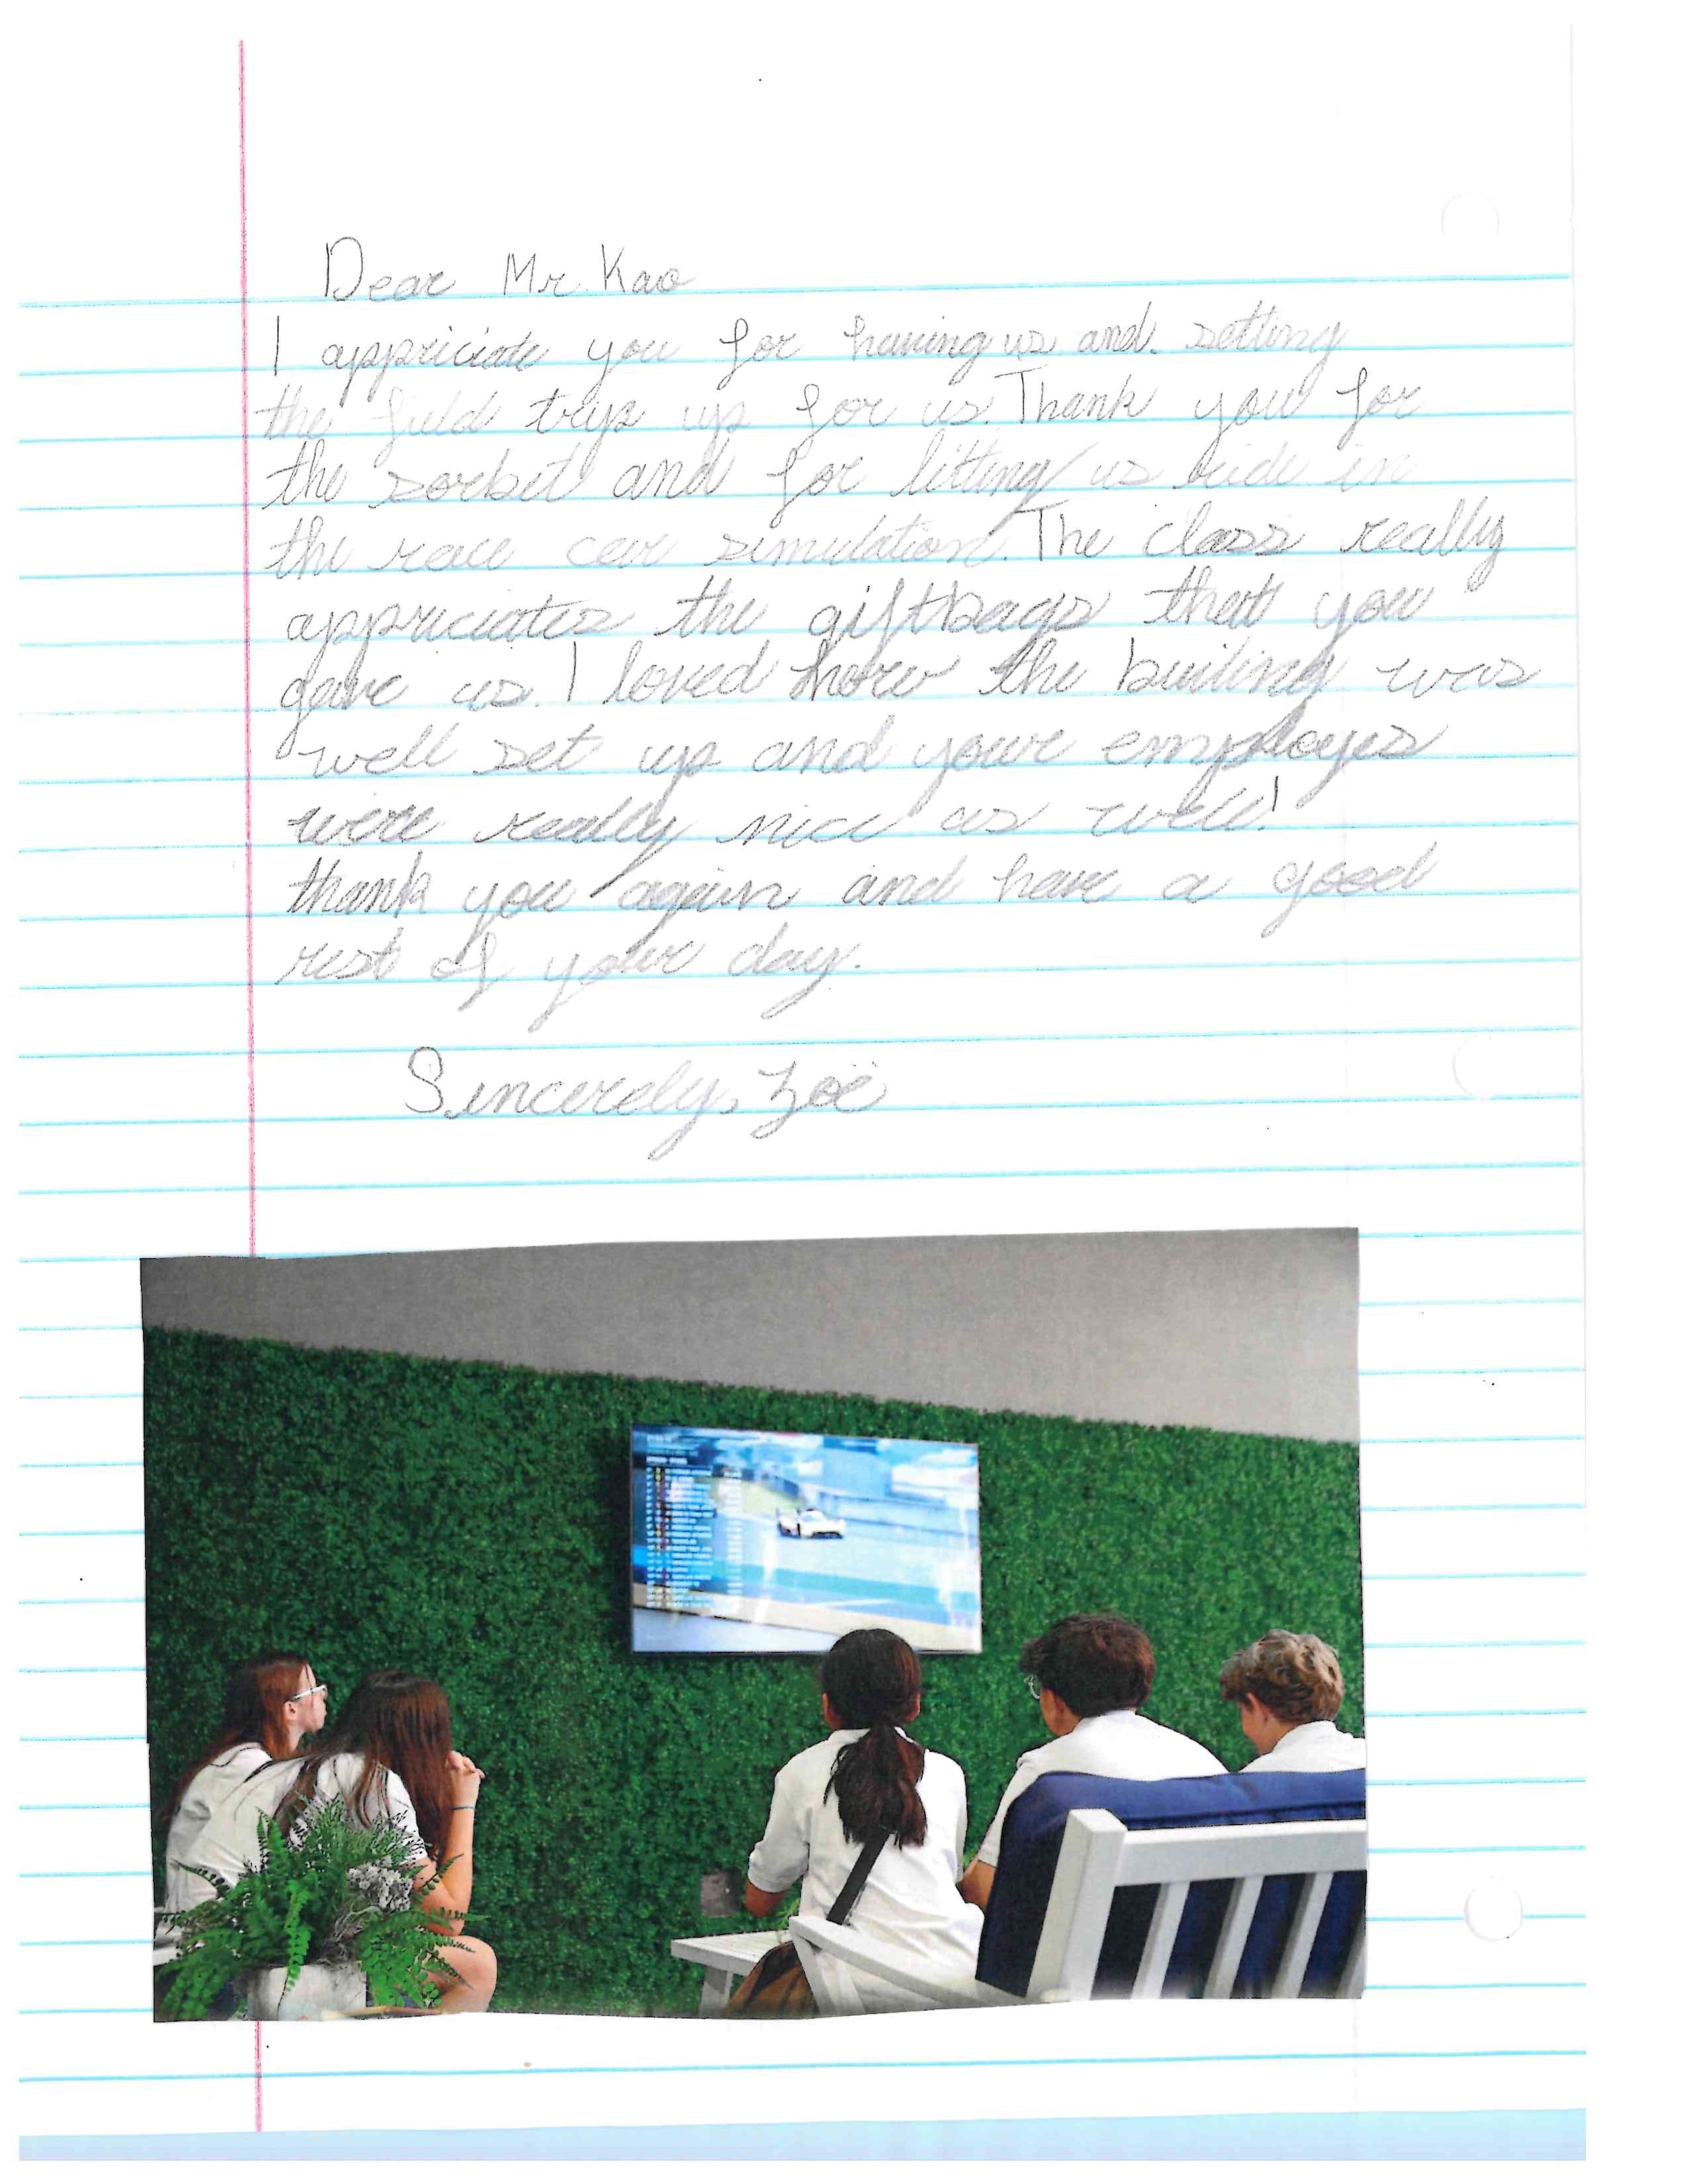 Dear Mr. Kao
I appriciate you for having us and. setting
the field trips up for us. Thank you for
the sorbet and for letting us ride in
the race car simulation. The class really
appriciates the giftbags that you
gave us. I loved how the builing was
well set up and your employes
were really nice as well!
thank you again and have a good
rest of your day.
Sincerely, Zoë